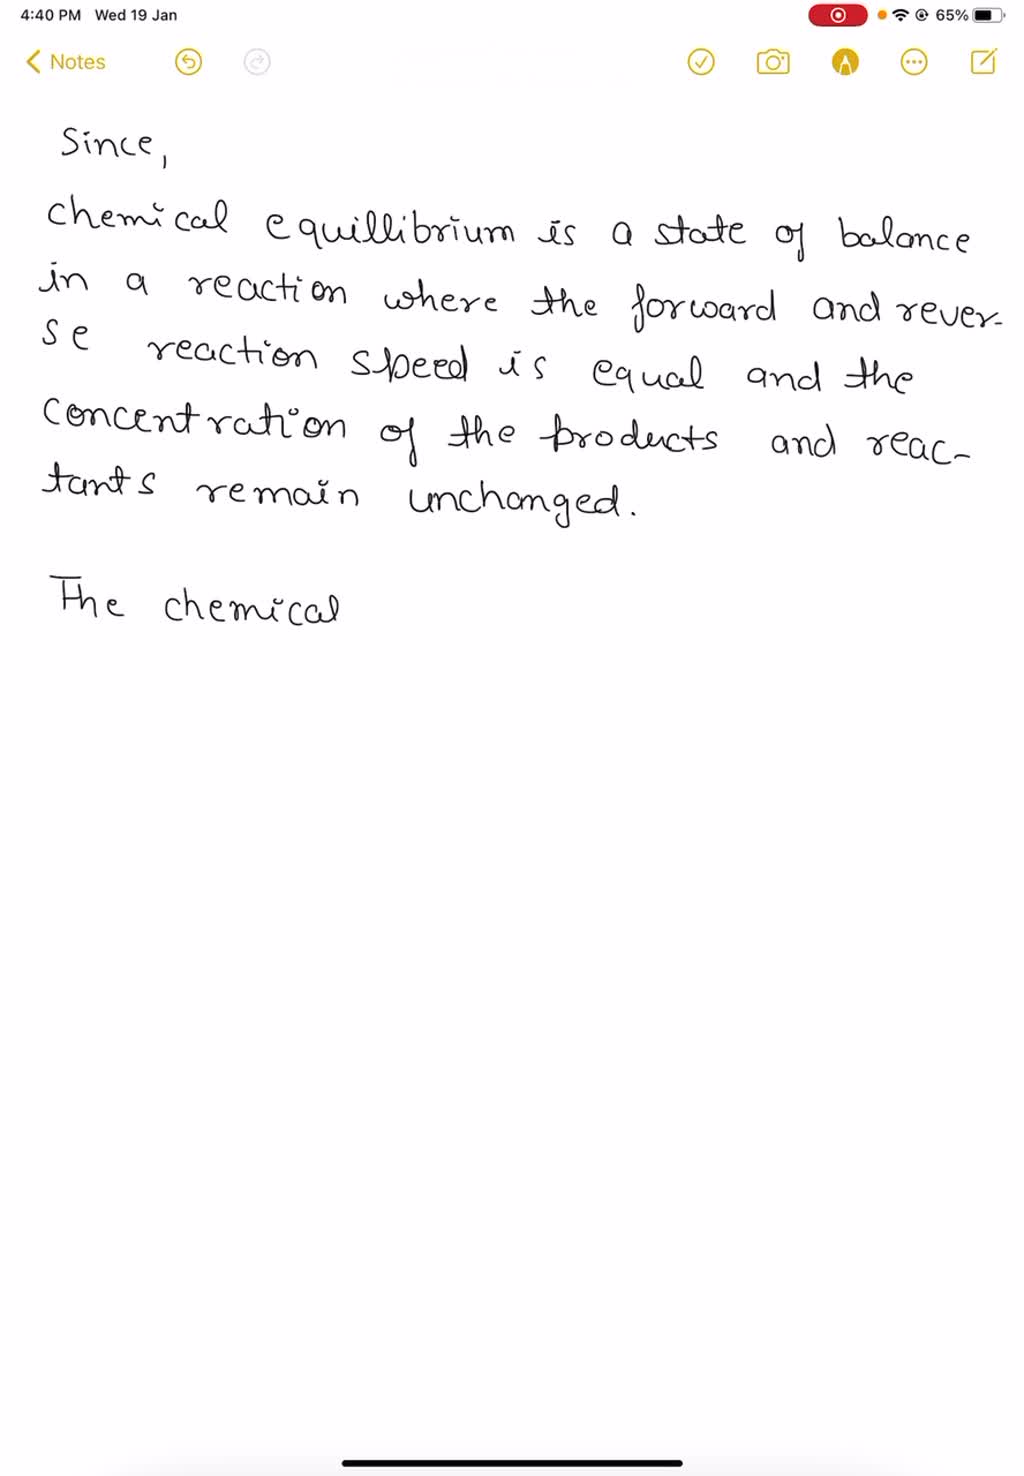 4:40 PM Wed 19 Jan 65%
Notes
Since,
chemical equillibrium is a state of balance
in a reaction where the forward and rever-
se reaction speed is equal and the
concentration of the products and reac-
tants remain unchanged.
The chemical